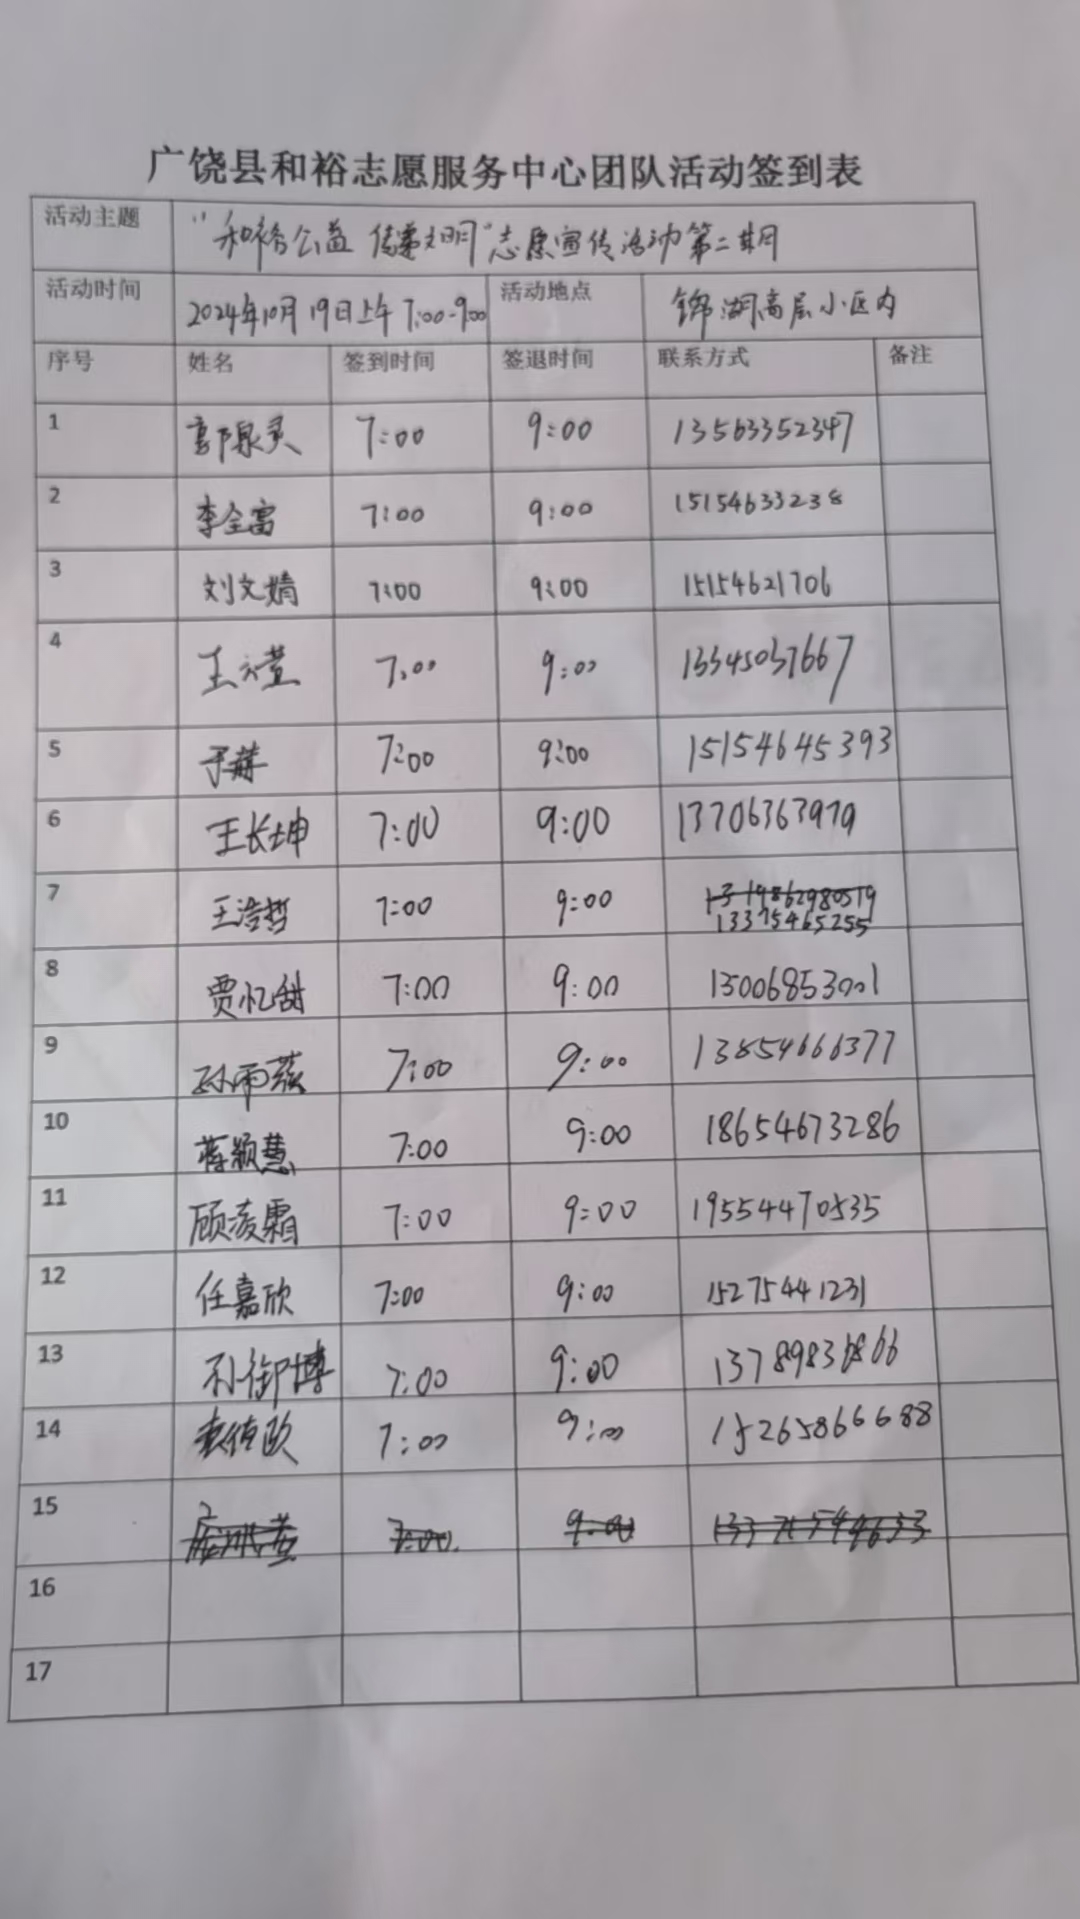 广饶县和裕志愿服务中心团队活动签到表
活动主题 "和裕公益 传递文明"志愿宣传活动第二期
活动时间 2024年10月19日上午7:00-9:00 活动地点 锦湖高层小区内
序号 姓名 签到时间 签退时间 联系方式 备注
1 郭泉灵 7:00 9:00 13563352347
2 李全富 7:00 9:00 15154633238
3 刘文婧 7:00 9:00 15154621706
4 王 7:00 9:00 13345037667
5 于赫 7:00 9:00 15154645393
6 王长坤 7:00 9:00 13706363979
7 王浩哲 7:00 9:00
13375465255
8 贾忆甜 7:00 9:00 15006853001
9 孙雨 7:00 9:00 13854666377
10 蒋颖慧 7:00 9:00 18654673286
11 顾凌霜 7:00 9:00 19554470535
12 任嘉欣 7:00 9:00 15275441231
13 孙御博 7:00 9:00
14 7:00 9:00 15265866688
15 7:00 9:00
16
17